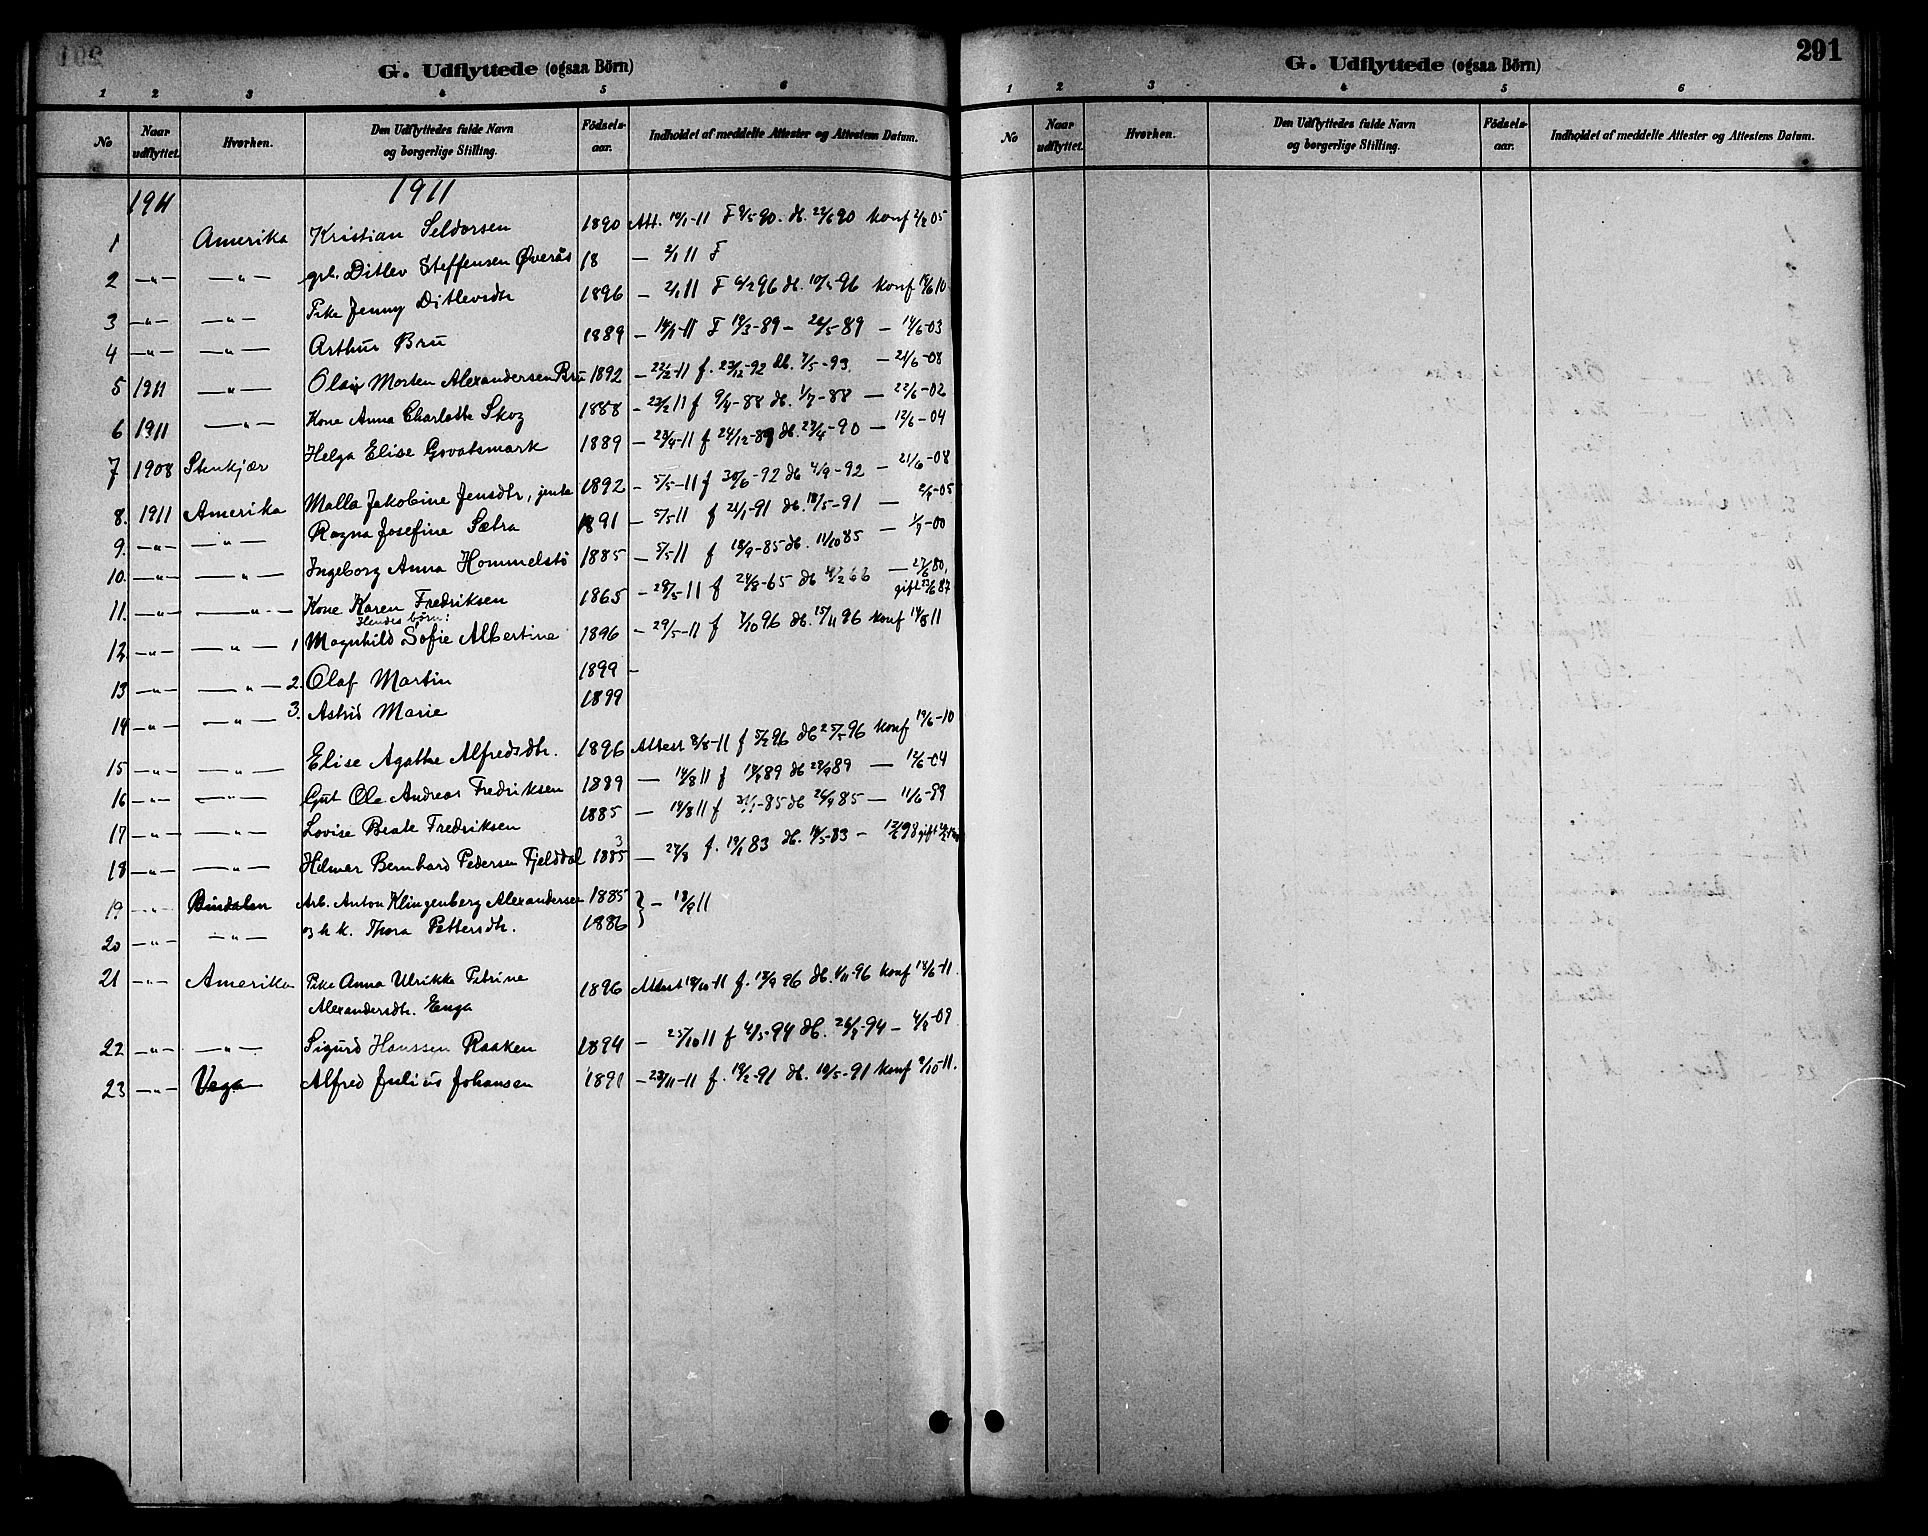 G. Udflyttede (ogsaa Börn)
1 2 3 4 5 6
No Naar udflyttet. Hvorhen. Den Udflyttedes fulde Navn og borgerlige Stilling. Födsels-aar. Indholdet af meddelte Attester og Attestens Datum.
1911 1911
1 Amerika Kristian Seldorsen 1890 Att.
2 -"- -"- Ditlev Steffensen Øverås 18 - 2/1 11 F
3 -"- -"- Pike Jenny Ditlevsdtr 1896 - 2/1 11 F 96 db. 96 konf 10
4 -"- -"- Arthur Bru 1889 - F 19/3-89 - 26/5-89 - 14/6-03
5 1911 -"- Olaf Morten Alexandersen Bru 1892 - 22/2-11 f. 23/12-92 db. 7/5-93 - 21/6-08
6 1911 -"- Kone Anna Charlotte Skog 1888 - 23/2 11 f 9/4-88 db. 1/7-88 - 22/6-02
7 1908 Stenkjær Helga Elise Govatsmark 1889 - 23/4-11 f 24/12-89 db. 23/4-90 - 12/6-04
8. 1911 Amerika Malla Jakobine Jensdtr, jente 1892 - 5/5-11 f 30/6-92 db 4/9-92 - 21/6-08
9. -"- -"- Ragna Josefine Sætra 1891 - 5/5 11 f 21/1-91 db. 18/5-91 -
10. -"- -"- Ingeborg Anna Hommelstø 1885 - 5/5 11 f 18/9-85 db. 11/10 85 - 1/7-00
11. -"- -"- Kone Karen Fredriksen 1865 - 29/5-11 f 65 db 66 - 27/6 80, gift 23/6 87
Hendes børn:
12. -"- -"- 1 Magnhild Sofie Albertine 1896 - 29/5-11 f 7/10 96 db. 15/11 96 konf 11
13 -"- -"- 2. Olaf Martin 1899 -
14 -"- -"- 3. Astrid Marie 1899
15 -"- -"- Elise Agathe Alfredsdtr. 1896 Attest 8/8-11 f 5/2 96 db 96 konf 19/6-10
16 -"- -"- Gut Ole Andreas Fredriksen 1889 - 14/8 11 f 89 db 89 - 12/6-04
17 -"- -"- Lovise Beate Fredriksen 1885 - 19/8 11 f 85 db 85 - 11/6-99
18 -"- -"- Hilmar Bernhard Pedersen Fjelddal 1885 3 - f. 83 db. 83 - 98 gift
19 -"- Bindalen Arb. Anton Klingenberg Alexandersen 1885 } - 11
20 -"- -"- og h. k. Thora Pettersdtr. 1886
21 -"- Amerika Pike Anna Ulrikke Petrine 1896 Attest 10-11 f. 96 db. 1/11-96 konf 11.
Alexandersdtr. Enga
22 -"- -"- Sigurd Hanssen Raaken 1894 - 25/10 11 f 4/5-94 db. 94 - 09
23 -"- Vega Alfred Julius Johansen 1891 - 23/11-11 f. 19/2-91 db. 19/5-91 konf 11.
291
G. Udflyttede (ogsaa Börn)
1 2 3 4 5 6
No Naar udflyttet. Hvorhen. Den Udflyttedes fulde Navn og borgerlige Stilling. Födsels-aar. Indholdet af meddelte Attester og Attestens Datum.